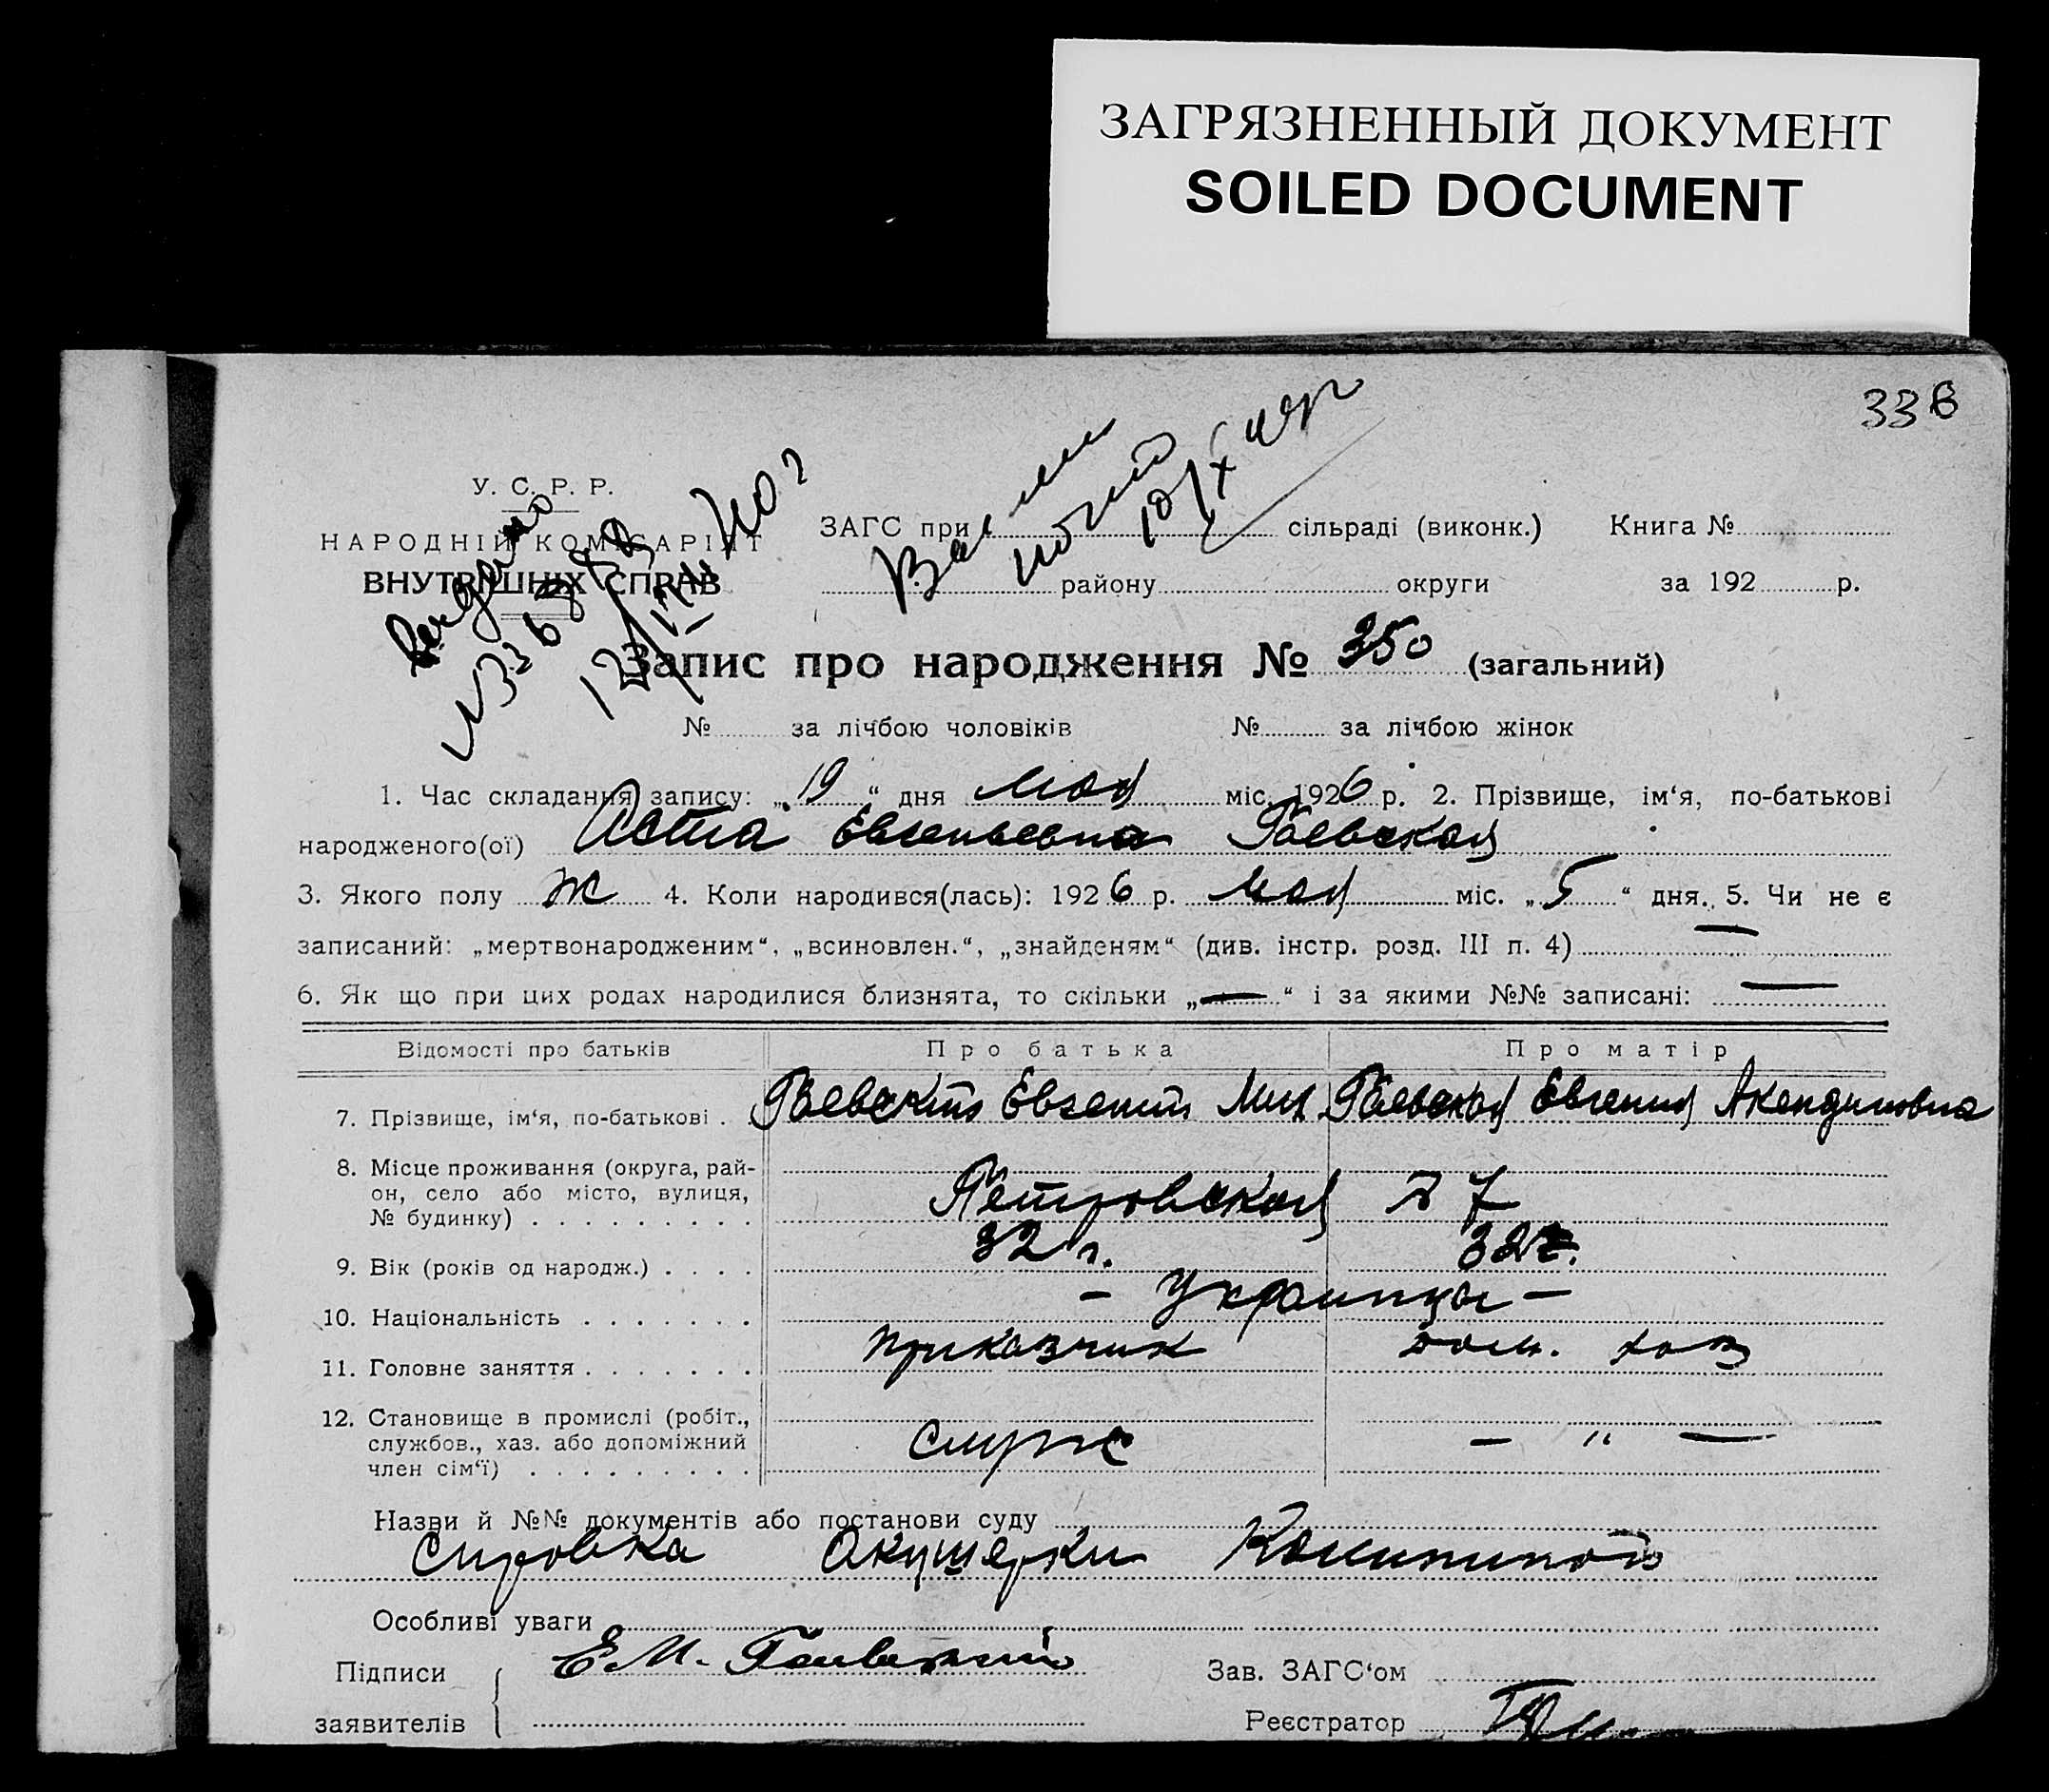 ЗАГРЯЗНЕННЫЙ ДОКУМЕНТ
SOILED DOCUMENT
33в
У. С. Р. Р.
НАРОДНІЙ КОМІСАРІЯТ
ВНУТРІШНІХ СПРАВ
ЗАГС при сільраді (виконк.) Книга №
району округи за 192 р.
Запис про народження № 350 (загальний)
№ за лічбою чоловіків № за лічбою жінок
1. Час складання запису: „19“ дня мая міс. 1926 р. 2. Прізвище, ім‘я, по-батькові
народженого(ої) Евгеньевна Гаевская
3. Якого полу Ж 4. Коли народився(лась): 1926 р. мая міс. „5“ дня. 5. Чи не є
записаний: „мертвонародженим“, „всиновлен.“, „знайденям“ (див. інстр. розд. III п. 4) —
6. Як що при цих родах народилися близнята, то скільки „—“ і за якими №№ записані: —
Відомості про батьків Про батька Про матір
7. Прізвище, ім‘я, по-батькові . Гаевский Евгений Мих Гаевская Евгения
8. Місце проживання (округа, рай-
он, село або місто, вулиця,
№ будинку) . . . . . . . . . Петровская 7
9. Вік (років од народж.) . . . . 32 г. 32 г.
10. Національність . . . . . . . — Украинцы —
11. Головне заняття . . . . . . . приказчик дом. хоз
12. Становище в промислі (робіт.,
службов., хаз. або допоміжний
член сім‘ї) . . . . . . . . . служ — " —
Назви й №№ документів або постанови суду
Справка Акушерки
Особливі уваги
Підписи Е М. Гаевский Зав. ЗАГС‘ом
заявителів Реєстратор